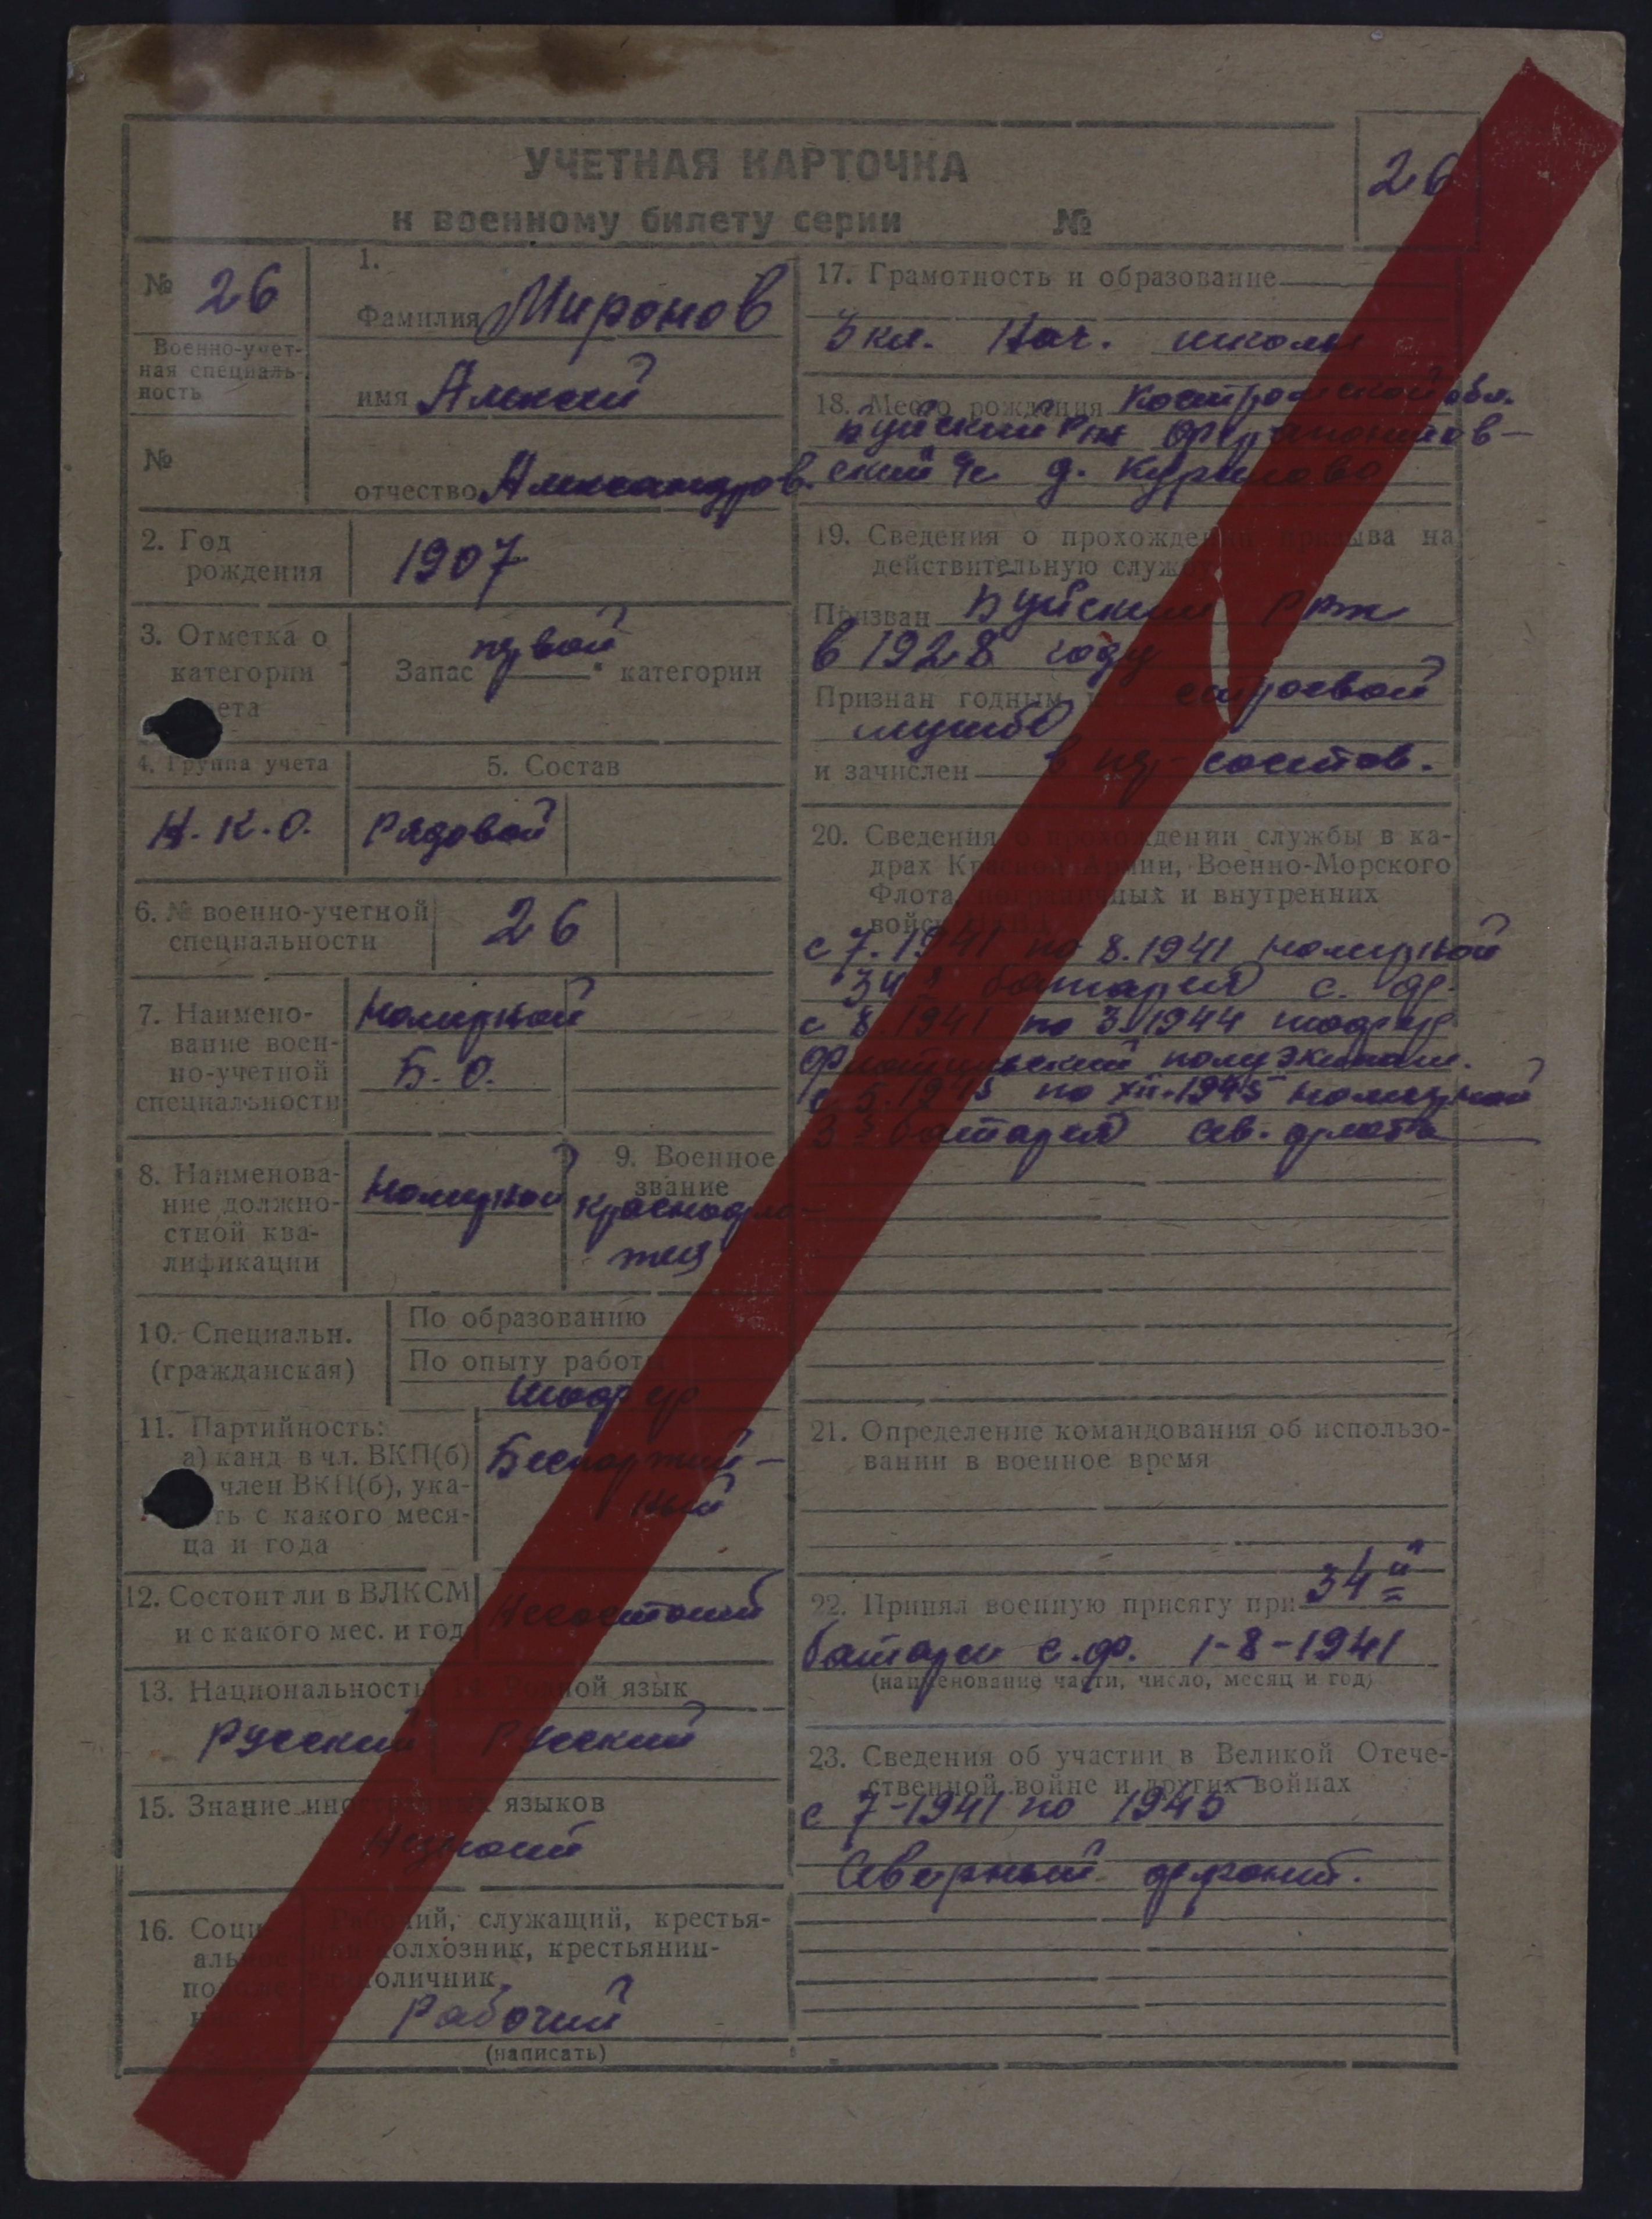 УЧЕТНАЯ КАРТОЧКА
26
к военному билету серии №
№ 26
Военно-учет-
ная специаль-
ность
№
1.
Фамилия Миронов
имя Алексей
отчество Александров.
2. Год
рождения
1907
3. Отметка о
категории
Запас первой категории
4. Группа учета
Н.К.О.
5. Состав
Рядовой
6. № военно-учетной
специальности
26
7. Наимено-
вание воен-
но-учетной
специальности
Номерной
Б.О.
8. Наименова-
ние должно-
стной ква-
лификации
Номерной
9. Военное
звание
краснофло-
тец
10. Специальн.
(гражданская)
По образованию
По опыту работы
Шофер
11. Партийность:
а) канд в чл. ВКП(б)
член ВКП(б), ука-
ть с какого меся-
ца и года
Беспартий-
ный
12. Состоит ли в ВЛКСМ
и с какого мес. и год
Несостоит
13. Национальность
Русский
14. Родной язык
Русский
15. Знание иностранных языков
Незнает
16. Социальное
Рабочий, служащий, крестья-
колхозник, крестьянин-
единоличник
Рабочий
(написать)
17. Грамотность и образование
3 кл. Нач. школы
18. Место рождения Костромской обл.
Буйский
д.
19. Сведения о прохождении призыва на
действительную службу
Призван Буйским РВК
в 1928 году
Признан годным к строевой
службе
и зачислен в состав.
20. Сведения о прохождении службы в ка-
драх Красной Армии, Военно-Морского
Флота, пограничных и внутренних
войск НКВД
с 7.1941 по 8.1941 номерной
34й батареи с. ф.
с 8.1941 по 3.1944 шофер
флотский полуэкипаж.
по XII.1945 номерной
батарея Сев. флота
21. Определение командования об использо-
вании в военное время
22. Принял военную присягу при 34й
батареи с.ф. 1-8-1941
(наименование части, число, месяц и год)
23. Сведения об участии в Великой Отече-
ственной войне и других войнах
с 7-1941 по 1945
Северный фронт.